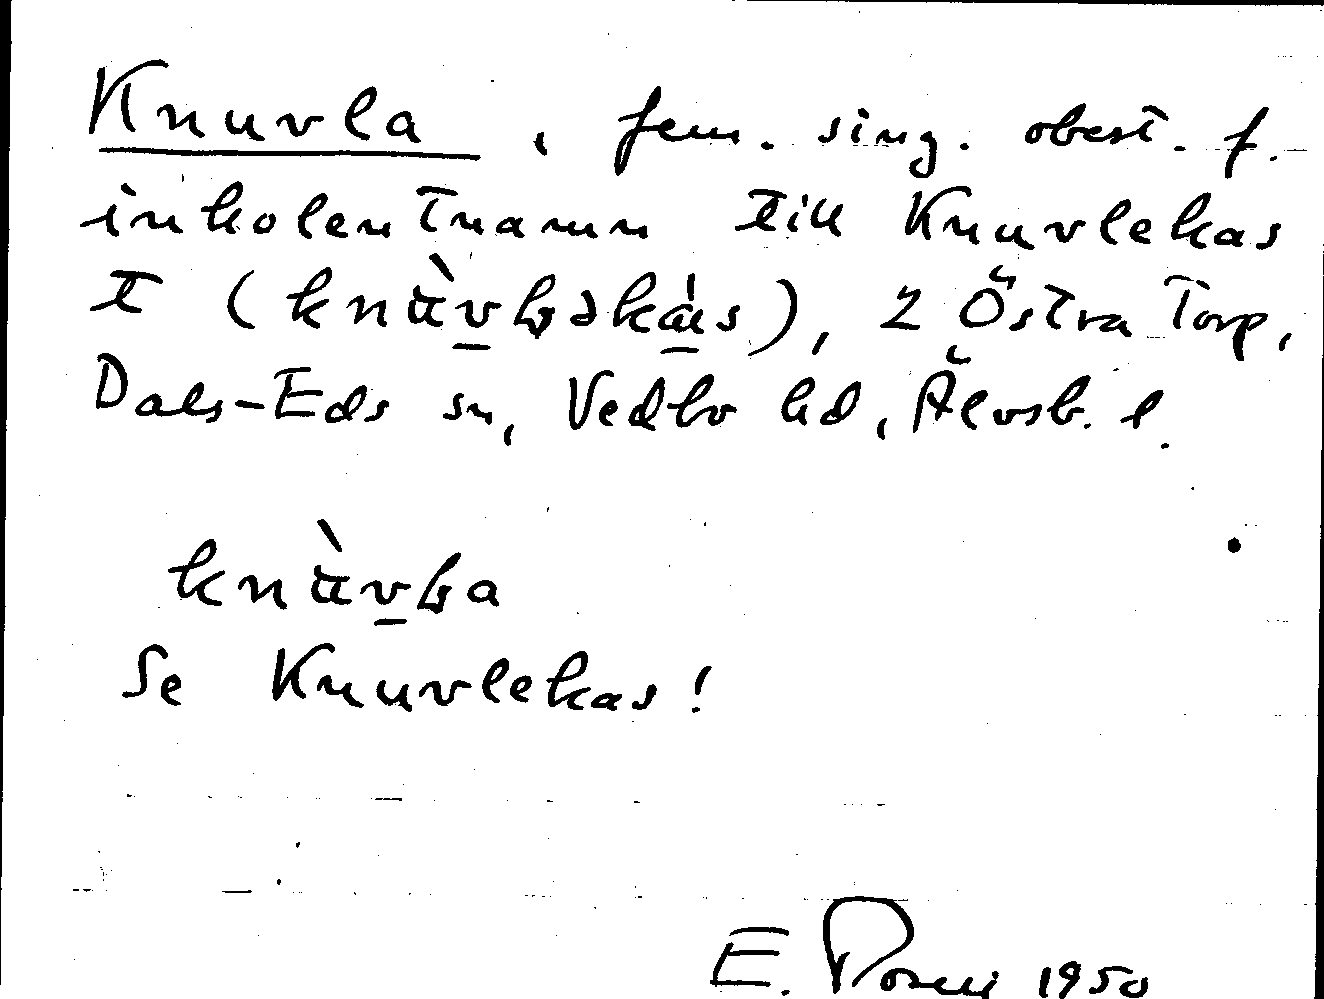 Knuvla, fem. sing. obest. f.
inkolentnamn till Knuvlekas
t (knùvḷəkás), 2 Östra Torp,
Dals-Eds sn, Vedbo hd, Älvsb. l.
knùvḷa
Se Knuvlekas!
E. 1950